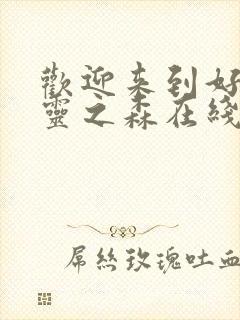 歡迎来到好
靈之森在綫
屌絲玫瑰吐血